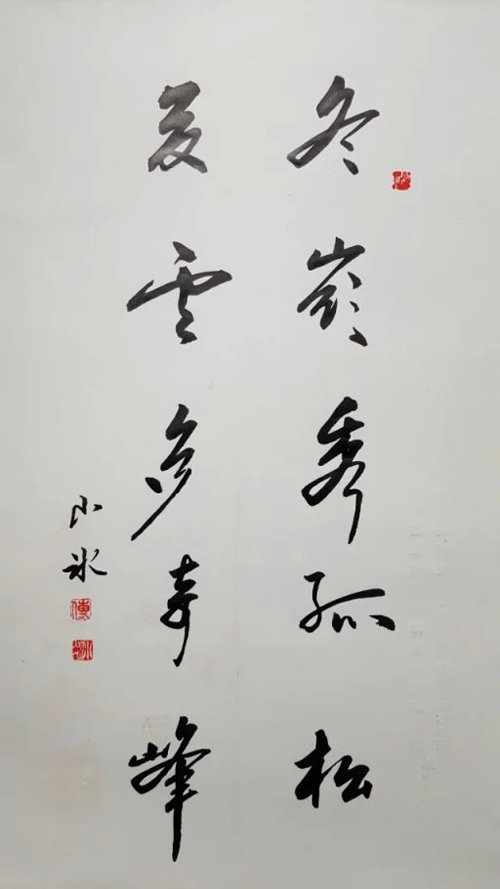 冬嶺秀孤松
夏雲多奇峰
小冰
傅